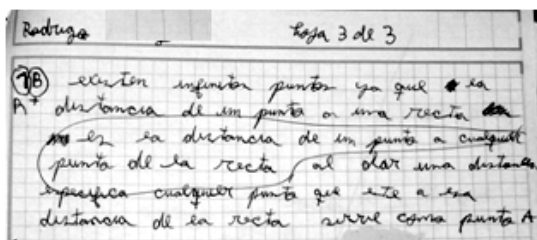 Rodrigo Hoja 3 de 3
1B existen infinitos puntos ya que la
R+ distancia de un punto a una recta
no es la distancia de un punto a cualquier
punto de la recta al dar una distancia
especifica cualquier punto que este a esa
distancia de la recta sirve como punto A